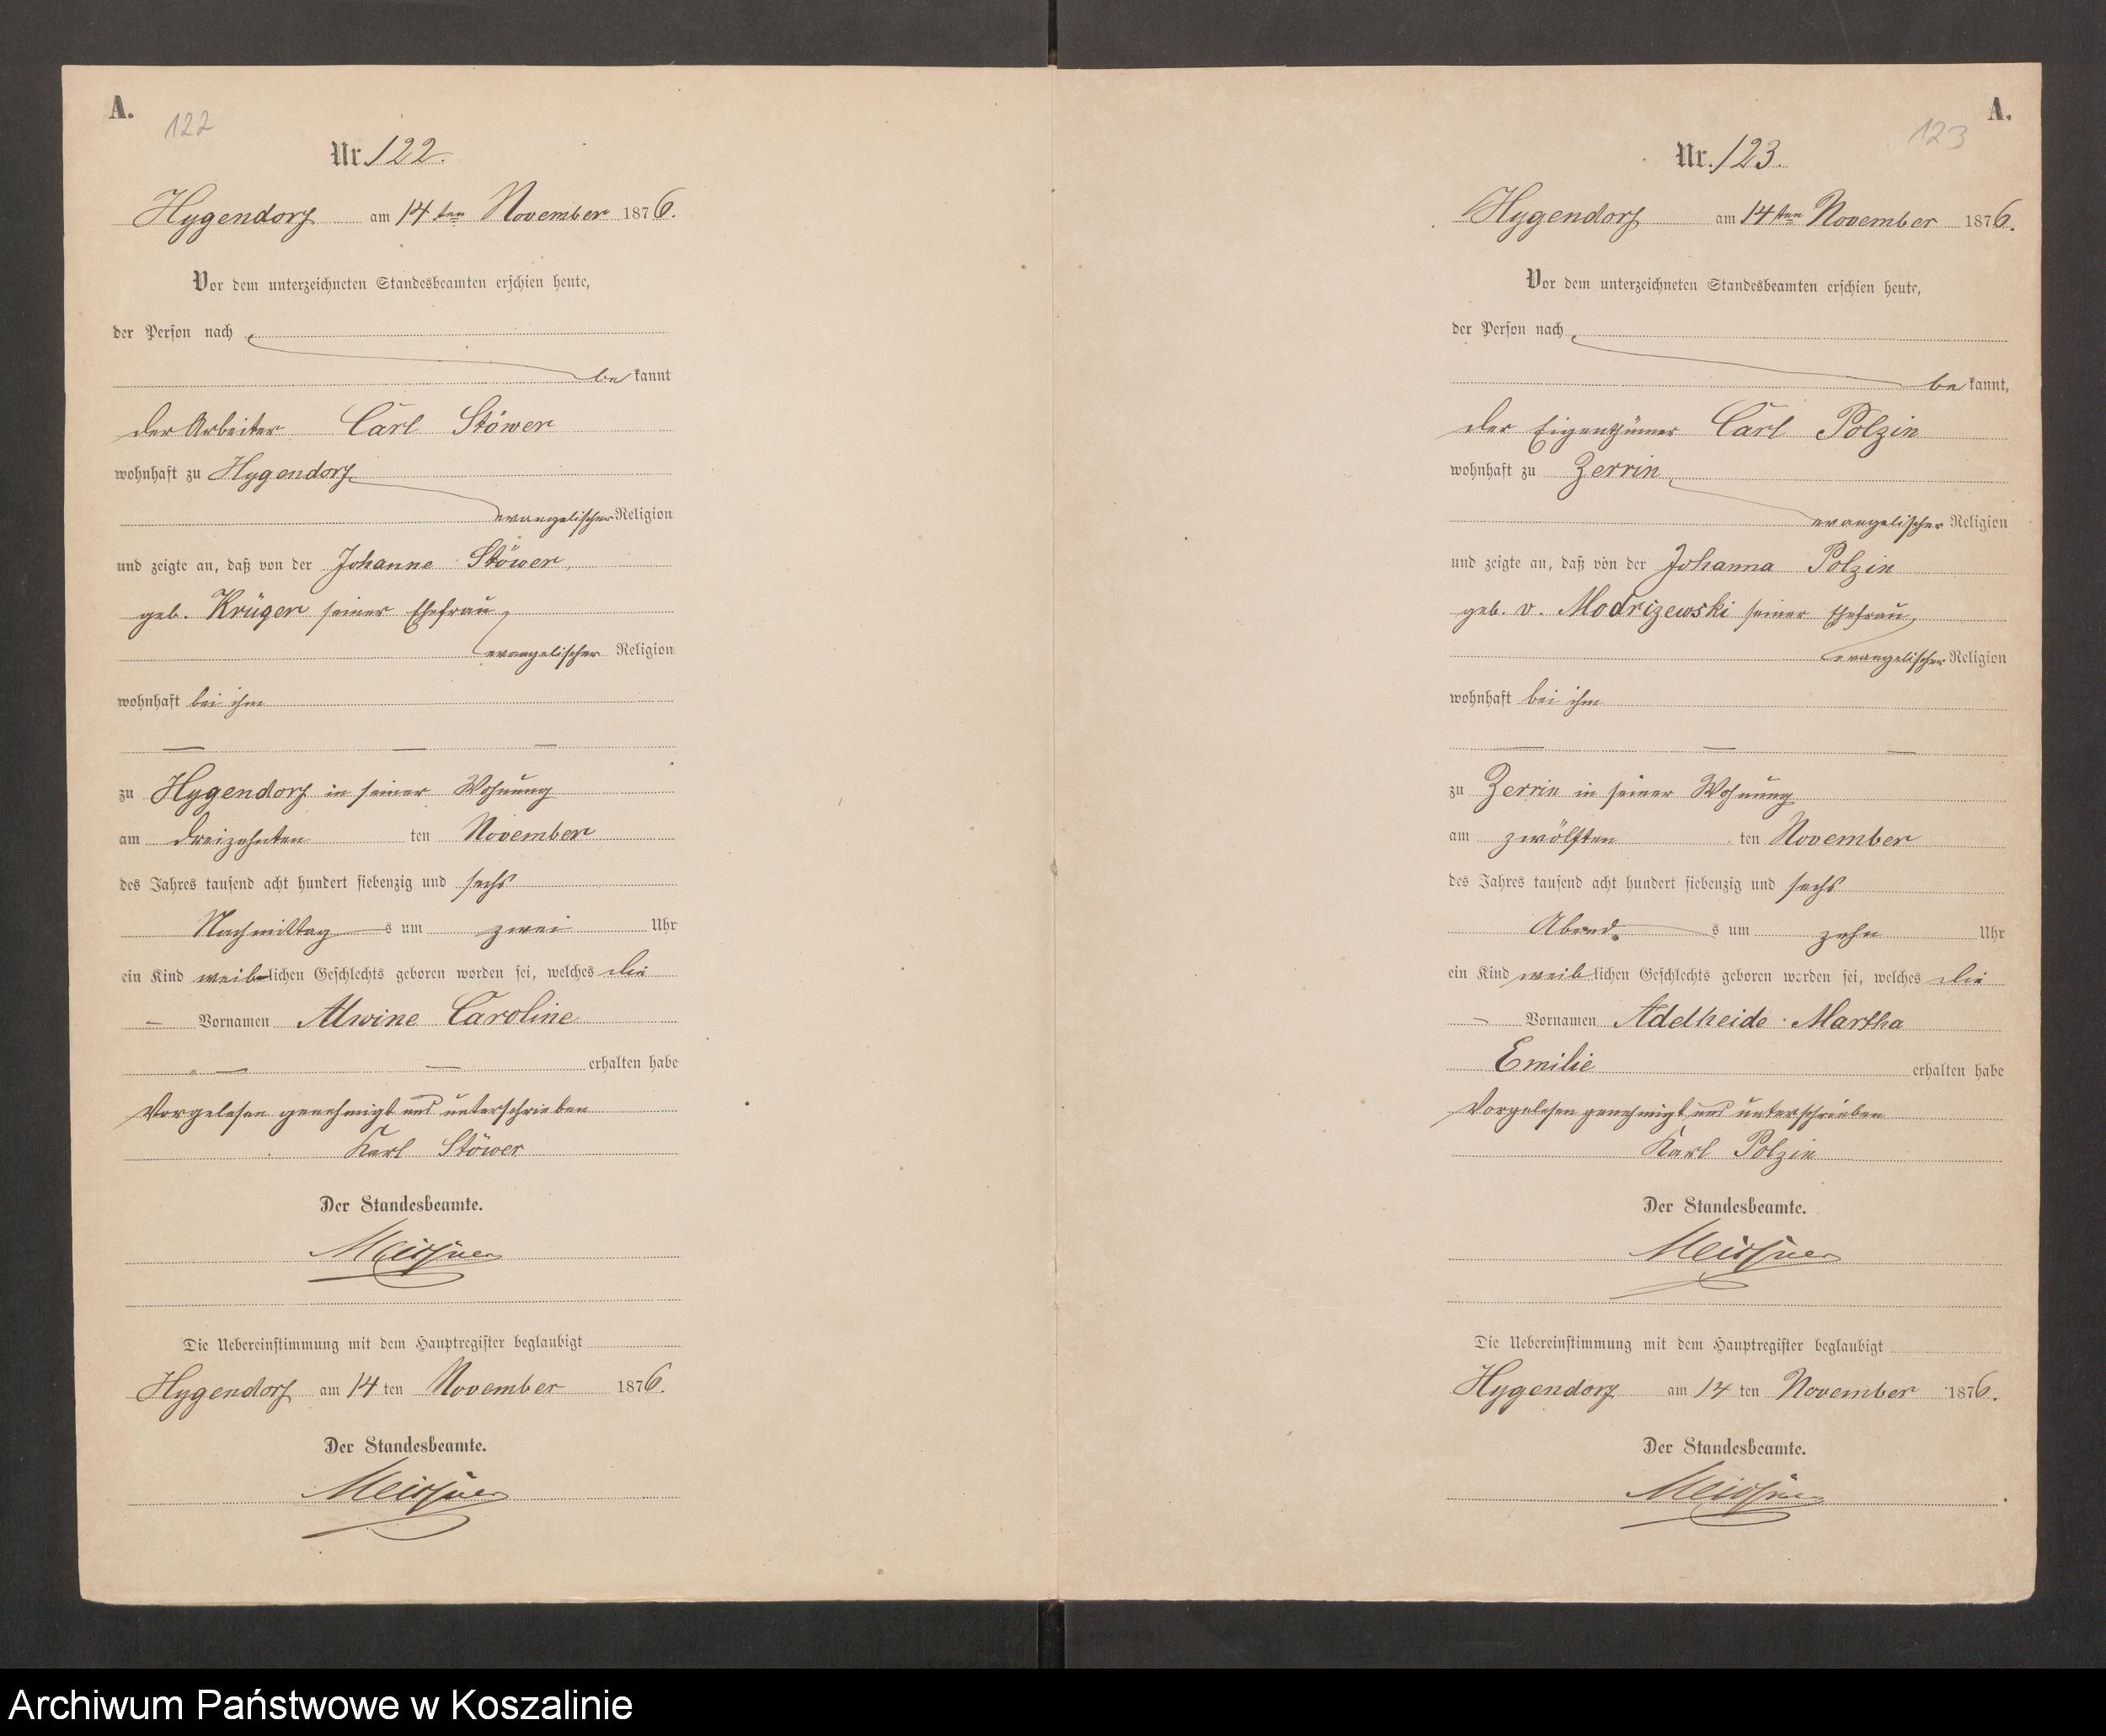 A.
122
Nr. 122.
Hygendorf am 14ten November 1876.
Vor dem unterzeichneten Standesbeamten erschien heute,
der Person nach
be kannt
der Arbeiter Carl Stöwer
wohnhaft zu Hygendorf
evangelischer Religion
und zeigte an, daß von der Johanne Stöwer,
geb. Krüger seiner Ehefrau,
evangelischer Religion
wohnhaft bei ihm
— — —
zu Hygendorf in seiner Wohnung
am dreizehnten ten November
des Jahres tausend acht hundert siebenzig und sechs
Nachmittag s um zwei Uhr
ein Kind weiblichen Geschlechts geboren worden sei, welches die
— Vornamen Alwine Caroline
— — erhalten habe
Vorgelesen genehmigt und unterschrieben
Karl Stöwer
Der Standesbeamte.
Meissner
Die Uebereinstimmung mit dem Hauptregister beglaubigt
Hygendorf am 14 ten November 1876.
Der Standesbeamte.
Meissner
A.
123
Nr. 123.
Hygendorf am 14ten November 1876.
Vor dem unterzeichneten Standesbeamten erschien heute,
der Person nach
be kannt,
der Eigenthümer Carl Polzin
wohnhaft zu Zerrin
evangelischer Religion
und zeigte an, daß von der Johanna Polzin
geb. v. Modrizewski seiner Ehefrau,
evangelischer Religion
wohnhaft bei ihm
— — —
zu Zerrin in seiner Wohnung
am zwölften ten November
des Jahres tausend acht hundert siebenzig und sechs
Abend s um zehn Uhr
ein Kind weiblichen Geschlechts geboren worden sei, welches die
— Vornamen Adelheide Martha
Emilie erhalten habe
Vorgelesen genehmigt und unterschrieben
Karl Polzin
Der Standesbeamte.
Meissner
Die Uebereinstimmung mit dem Hauptregister beglaubigt
Hygendorf am 14 ten November 1876.
Der Standesbeamte.
Meissner
Archiwum Państwowe w Koszalinie